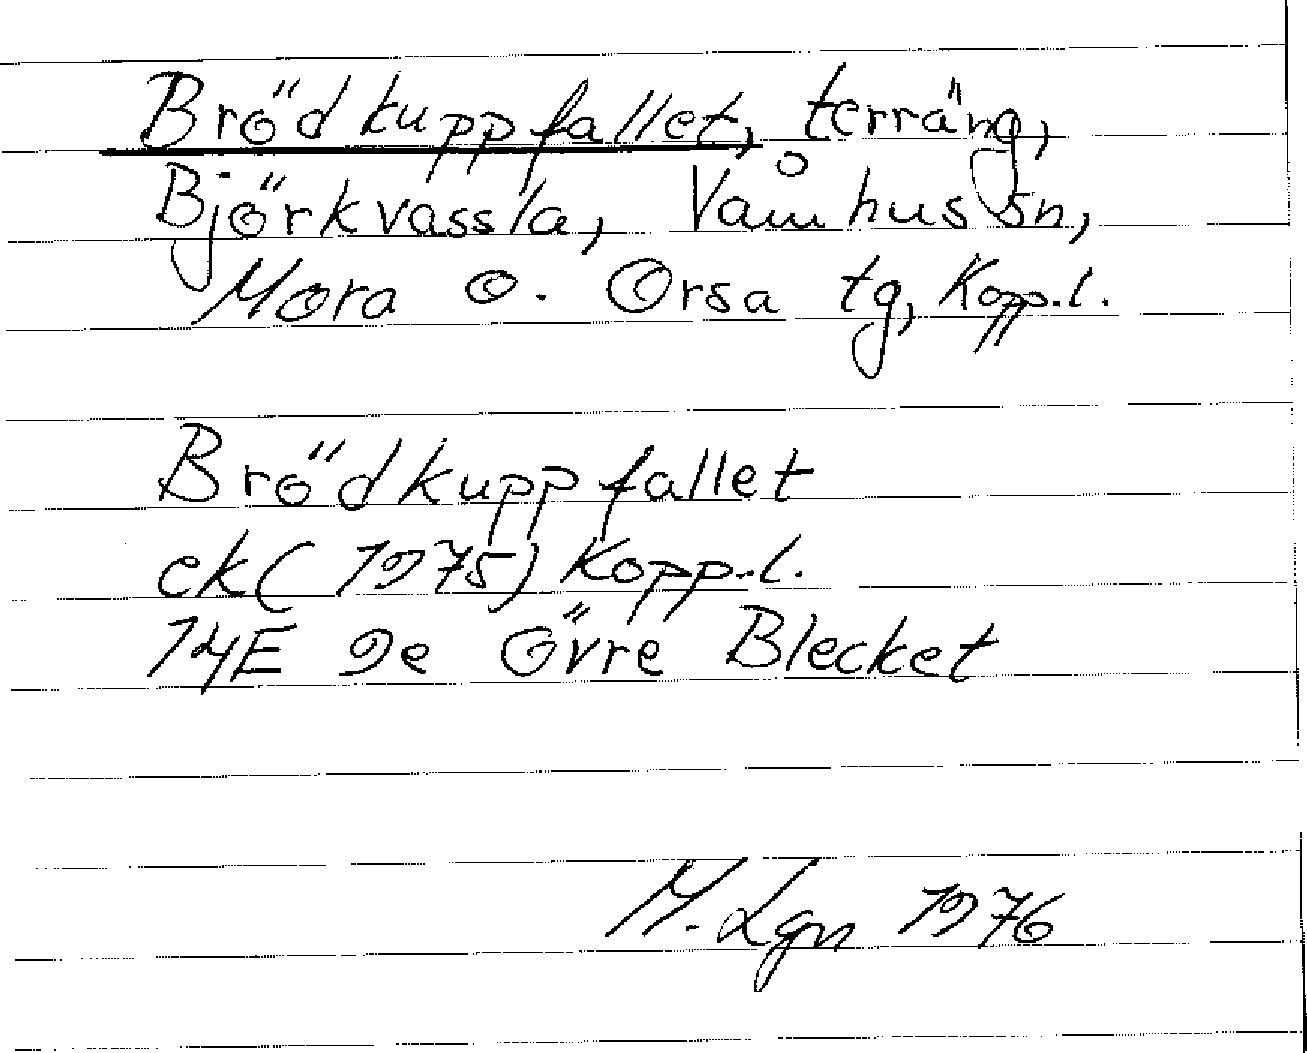 Brödkuppfallet, terräng,
Björkvassla, Våmhus sn,
Mora o. Orsa tg, Kopp.l.
Brödkuppfallet
ek (1975) Kopp.l.
14E 9e Övre Blecket
M. Lgn 1976